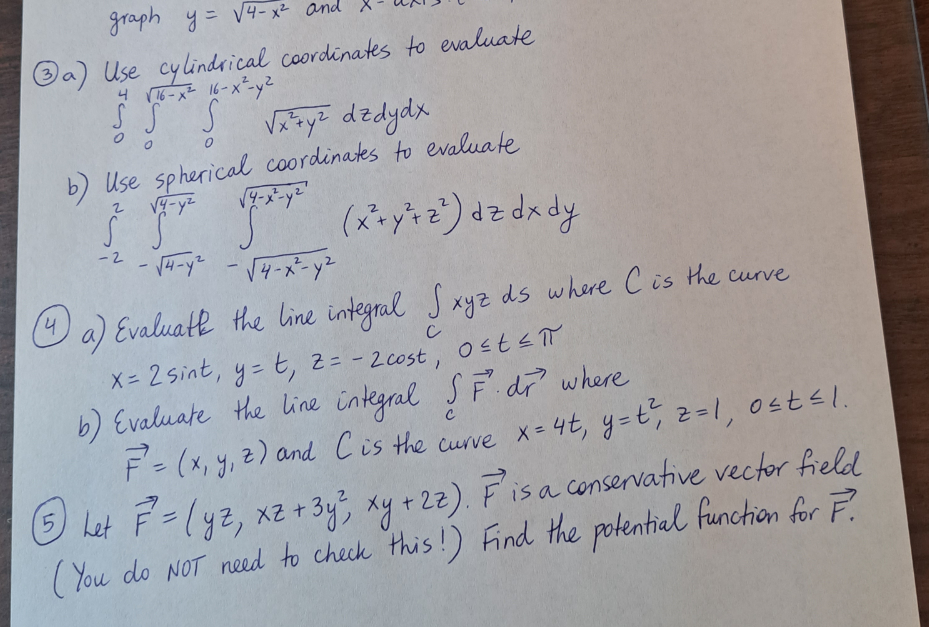 graph y = √4-x² and x-axis.
③ a) Use cylindrical coordinates to evaluate
∫₀⁴ ∫₀^√16-x² ∫₀^16-x²-y² √x²+y² dzdydx
b) Use spherical coordinates to evaluate
∫₋₂² ∫_-√4-y²^√4-y² ∫_-√4-x²-y²^√4-x²-y² (x²+y²+z²) dz dx dy
④ a) Evaluate the line integral ∫_C xyz ds where C is the curve
x = 2 sint, y = t, z = -2cost, 0≤t≤π
b) Evaluate the line integral ∫_C F⃗ · dr⃗ where
F⃗ = (x, y, z) and C is the curve x = 4t, y = t², z = 1, 0≤t≤1.
⑤ Let F⃗ = (yz, xz + 3y², xy + 2z). F⃗ is a conservative vector field
(You do NOT need to check this!) Find the potential function for F⃗.